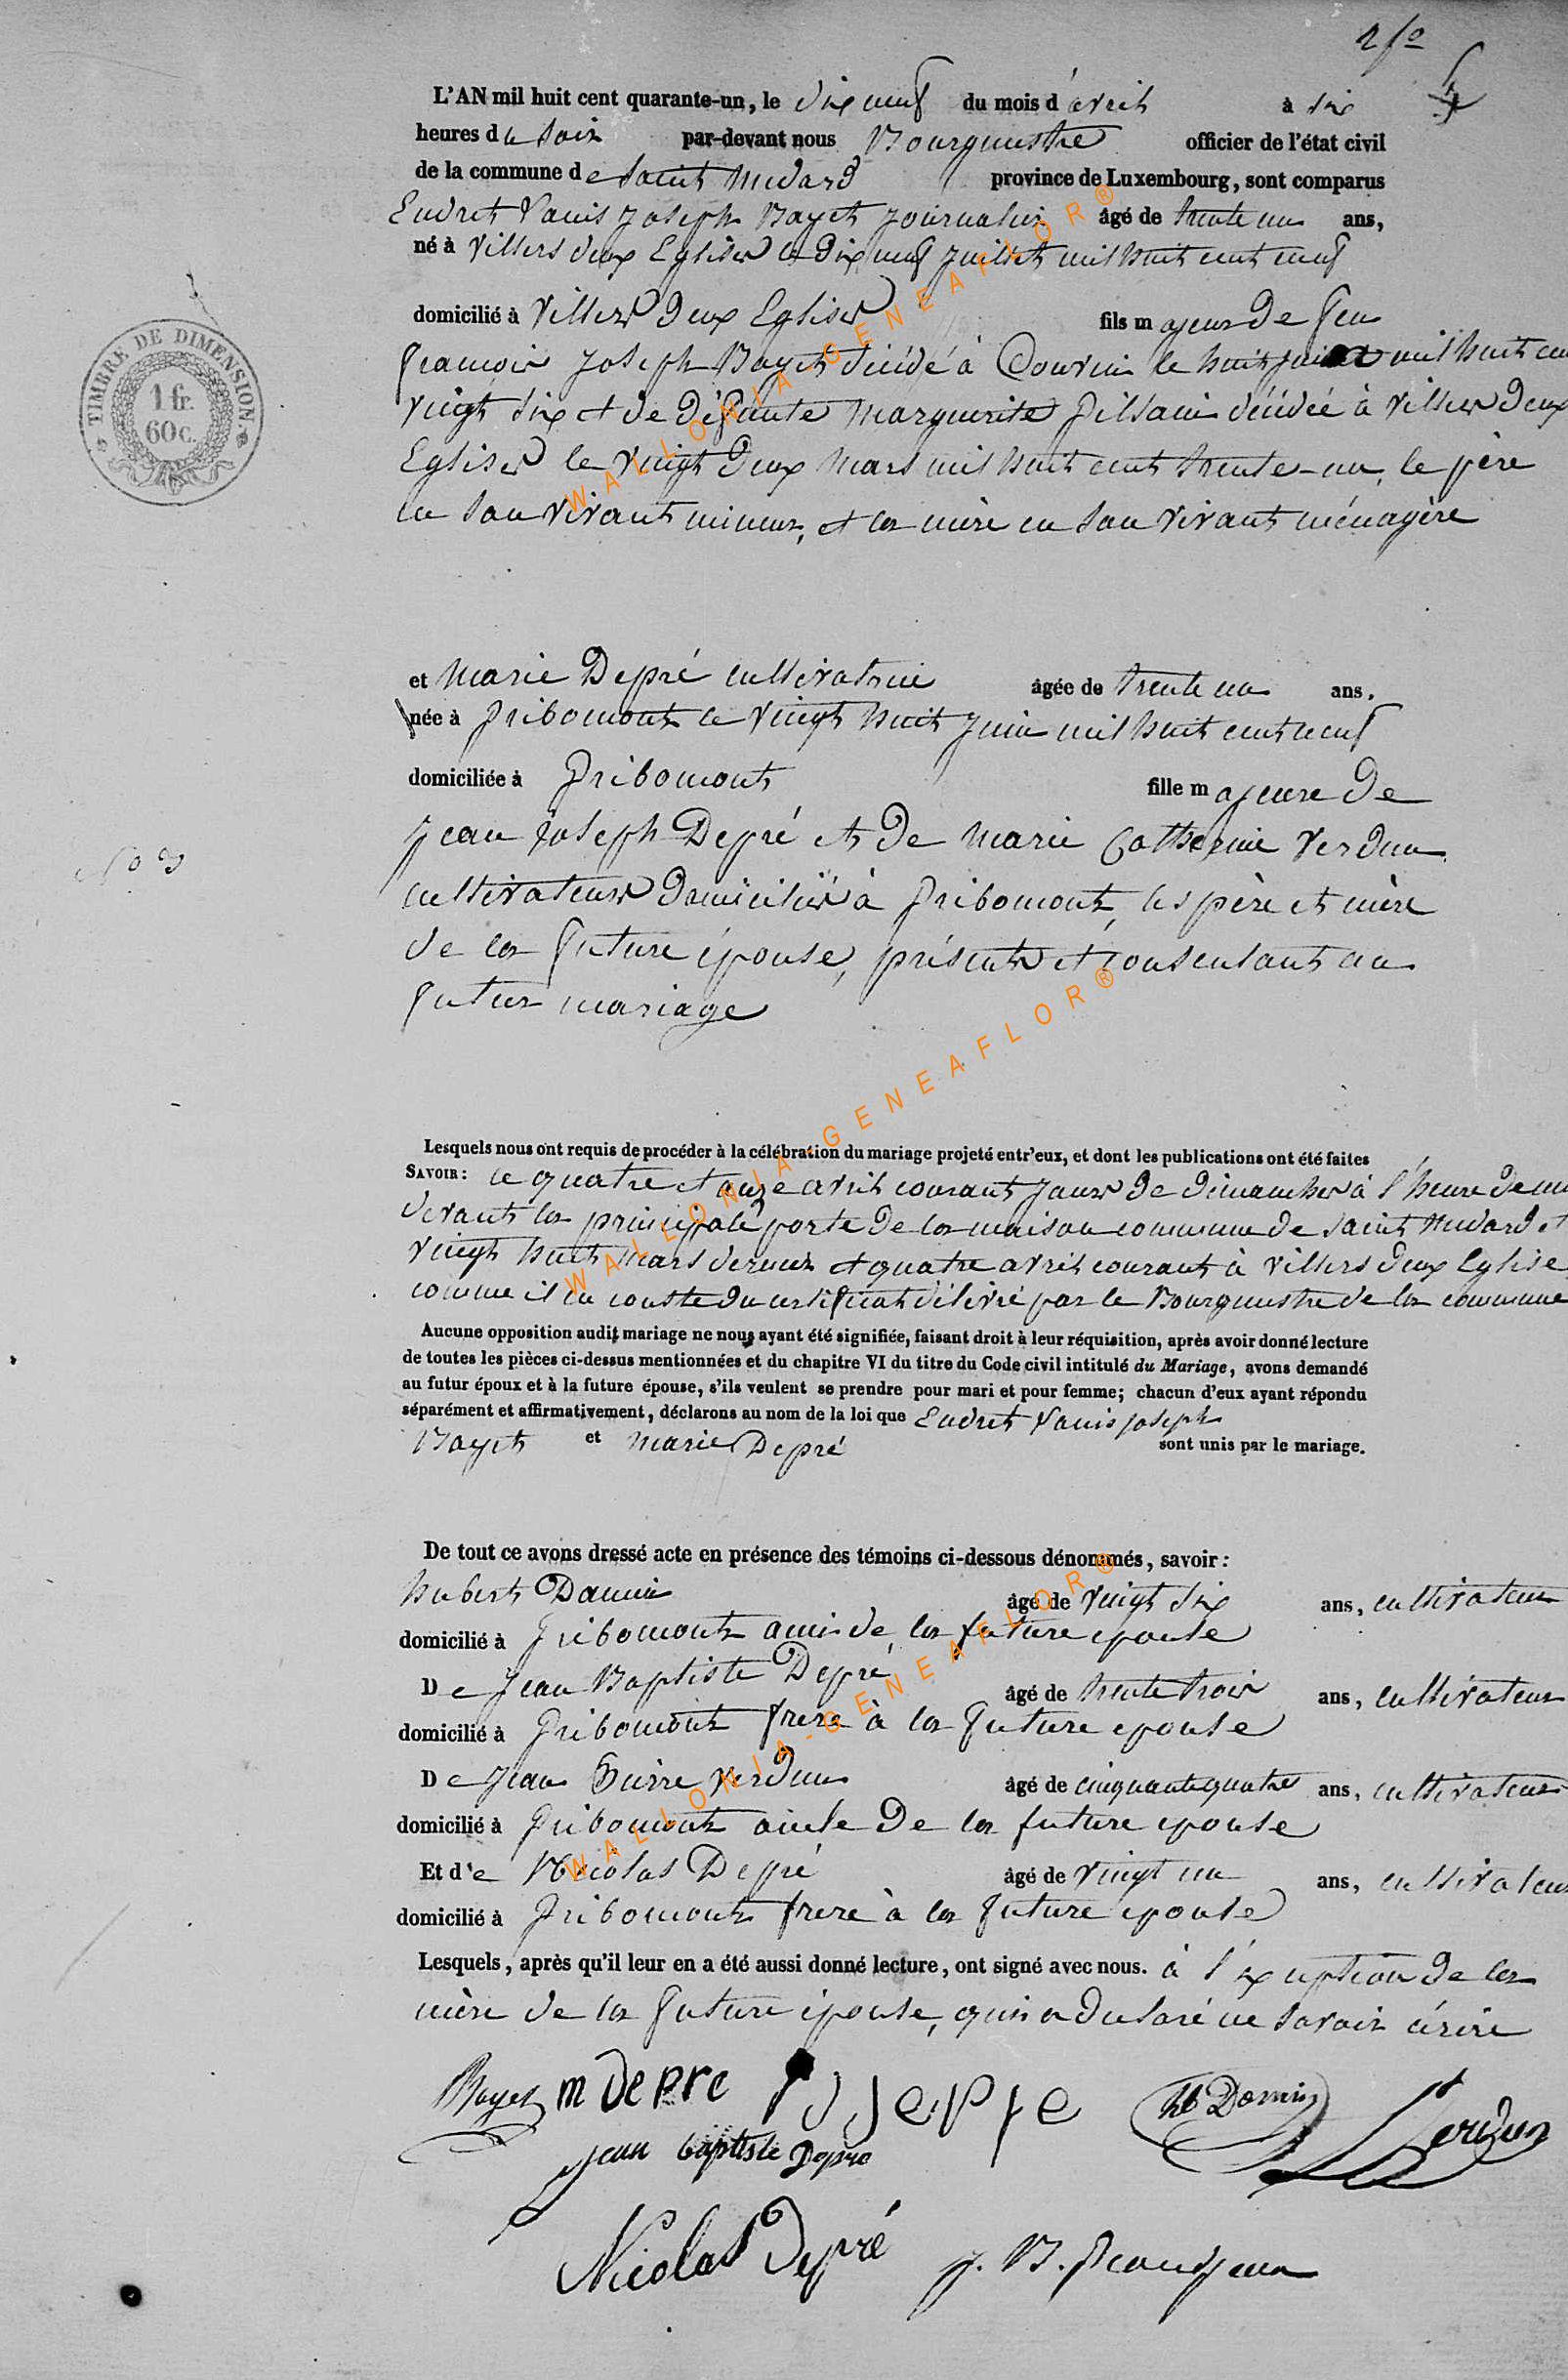 2 fo
L'AN mil huit cent quarante-un, le dix neuf du mois d'avril à six
heures du soir par-devant nous Bourgmestre officier de l'état civil
de la commune de Saint Médard province de Luxembourg, sont comparus
Louis Joseph Bayet journalier âgé de trente un ans,
né à Villers deux Eglises le dix neuf juillet mil huit cent neuf
domicilié à Villers deux Eglises fils majeur de feu
François Joseph Bayet décédé à Couvin le huit mil huit cent
vingt six et de défunte Marguerite décédée à Villers deux
Eglises le vingt deux mars mil huit cent trente-un, le père
en son vivant mineur, et la mère en son vivant ménagère
et Marie Depré cultivatrice âgée de trente un ans.
née à Gribomont le vingt huit juin mil huit cent neuf
domiciliée à Gribomont fille majeure de
Jean Joseph Depré et de Marie Catherine Verdun
cultivateurs domiciliés à Gribomont, les père et mère
de la future épouse, présents et consentant au
futur mariage
No 3
Lesquels nous ont requis de procéder à la célébration du mariage projeté entr'eux, et dont les publications ont été faites
SAVOIR: le quatre et onze avril courant jours de dimanches à l'heure de
devant la principale porte de la maison commune de Saint Médard et
vingt huit mars dernier et quatre avril courant à Villers deux Eglise
comme il en conste du certificat délivré par le Bourgmestre de la commune
Aucune opposition audit mariage ne nous ayant été signifiée, faisant droit à leur réquisition, après avoir donné lecture
de toutes les pièces ci-dessus mentionnées et du chapitre VI du titre du Code civil intitulé du Mariage, avons demandé
au futur époux et à la future épouse, s'ils veulent se prendre pour mari et pour femme; chacun d'eux ayant répondu
séparément et affirmativement, déclarons au nom de la loi que Louis Joseph
Bayet et Marie Depré sont unis par le mariage.
De tout ce avons dressé acte en présence des témoins ci-dessous dénommés, savoir:
hubert Damin âgé de vingt six ans, cultivateur
domicilié à Gribomont ami de la future epouse
De Jean Baptiste Depré âgé de trente trois ans, cultivateur
domicilié à Gribomont frere à la future epouse
De Jean Pierre Verdun âgé de cinquante quatre ans, cultivateur
domicilié à Gribomont oncle de la future epouse
Et de Nicolas Depré âgé de vingt un ans, cultivateur
domicilié à Gribomont frere à la future epouse
Lesquels, après qu'il leur en a été aussi donné lecture, ont signé avec nous. à l'exception de la
mère de la future épouse, qui a declaré ne savoir écrire
Bayet m Depre hb Damin Verdun
jean baptiste Depre
Nicolas Depré J. B. Grandjean
TIMBRE DE DIMENSION
1 fr.
60 c.
WALLONIA-GENEAFLOR®
WALLONIA-GENEAFLOR®
WALLONIA-GENEAFLOR®